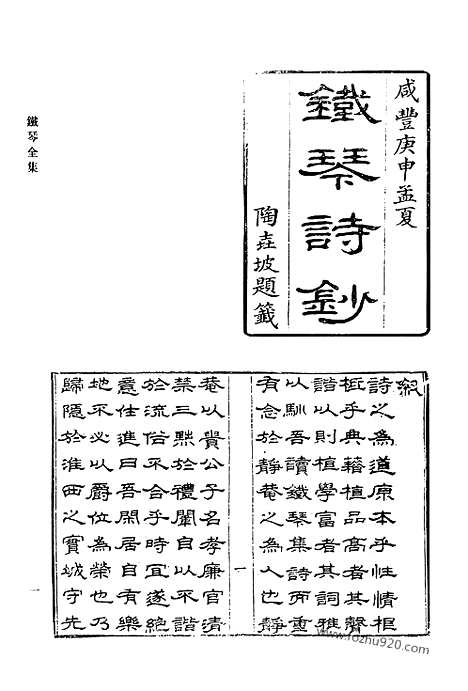 咸豐庚申孟夏
鐵琴詩鈔
陶堯坡題籤
鐵琴全集
敘
詩之為道原本乎性情柜
柜乎典籍植品高者其聲
諧以則植學富者其詞雅
以馴吾讀鐵琴集詩而重
有念於靜菴之為人也靜
一
菴以貴公子名孝廉官清
禁三黜於禮闈自以不諧
於流俗不合乎時宜遂絕
意仕進曰吾閑居自有樂
地不必以爵位為榮也乃
歸隱於淮西之寶城守先
一
www.fozhu920.com